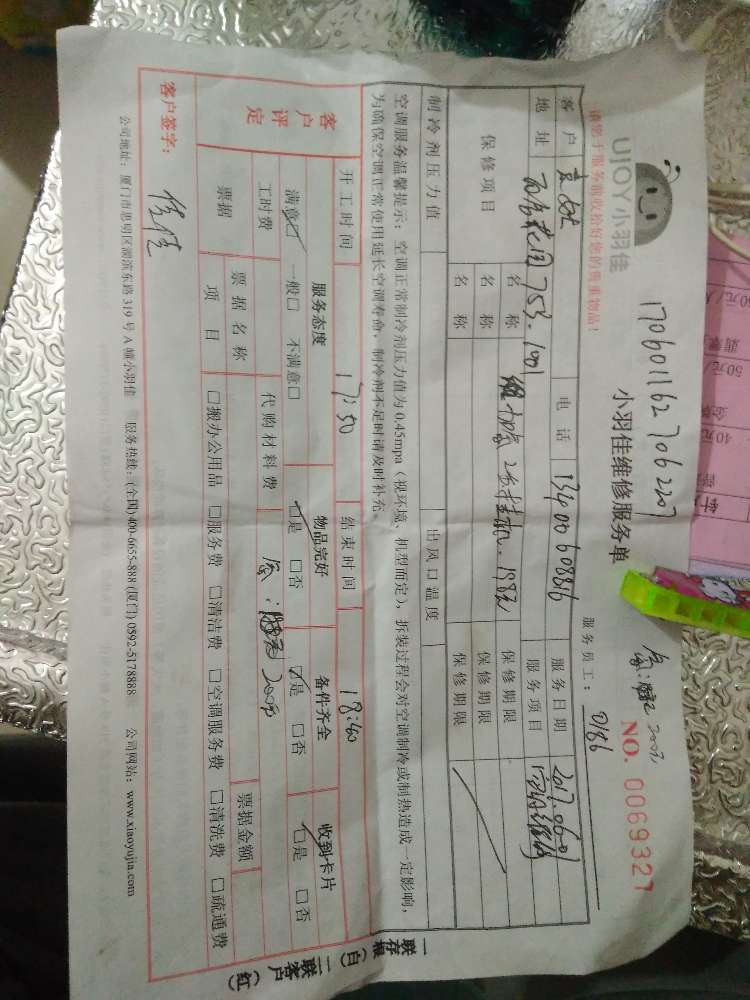 UJOY小羽佳
1706011627062207
小羽佳维修服务单
NO. 0069327
请您于服务前收拾好您的贵重物品!
服务员工: 0186
客户
电话 13400608816
服务日期 2017.0601
地址 753.1001
服务项目 空调维修
保修项目
名称
保修期限
名称
保修期限
名称
保修期限
制冷剂压力值
出风口温度
空调服务温馨提示:空调正常制冷剂压力值为0.45mpa(视环境、机型而定),拆装过程会对空调制冷或制热造成一定影响,
为确保空调正常使用延长空调寿命,制冷剂不足时请及时补充。
开工时间 17:50
结束时间 18:40
客户评定
服务态度
物品完好
备件齐全
收到卡片
满意☑ 一般□ 不满意□
☑是 □否
☑是 □否
☑是 □否
工时费
代购材料费
200元
票据
票据名称
票据金额
项目
□搬办公用品 □服务费 □清洁费 □空调服务费 □清洗费 □疏通费
客户签字:
公司地址:厦门市思明区湖滨东路319号A幢小羽佳 服务热线:(全国)400-6655-888 (厦门) 0592-5178888 公司网站:www.xiaoyujia.com
一联存根(白) 二联客户(红)
50元/
40元